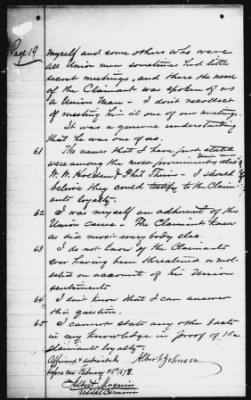 Page 19
myself and some others who were
all Union men sometimes had little
secret meetings, and there the name
of the Claimant was spoken of as
a Union Man - I don't recollect
of meeting him at one of our meetings.
It was a general understanding
that he was one of us.
61 The names that I have just stated
were among the most prominent also
Union men
W. W. Holden & Thiem - I should
believe they could testify to the Claim-
ants loyalty.
62 I was myself an adherent of the
Union cause. The Claimant knew
as did most everybody else.
63 I do not know of the Claimants
ever having been threatened or mol-
ested on account of his Union
sentiments
64 I don't know that I can answer
this question.
65 I cannot state any other facts
in my knowledge in proof of the
claimants loyalty.
Affirmed & subscribed Albert Johnson
before me February 1878.
Albert